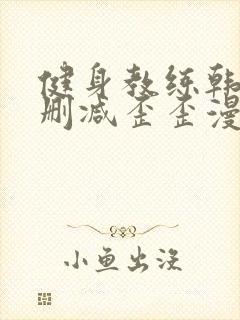 健身教练韩
删减歪歪漫
小鱼出没